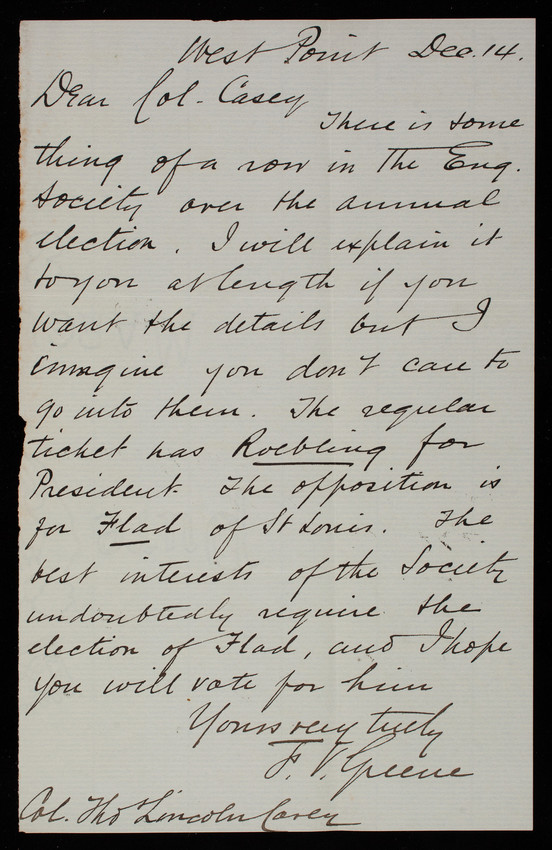 West Point Dec. 14.
Dear Col. Casey
There is some
thing of a row in the Eng.
Society over the annual
election. I will explain it
to you at length if you
want the details but I
imagine you don't care to
go into them. The regular
ticket has Roebling for
President. The opposition is
for Flad of St Louis. The
best interests of the Society
undoubtedly require the
election of Flad, and I hope
you will vote for him
Yours very truly
F. V. Greene
Col. Tho Lincoln Casey